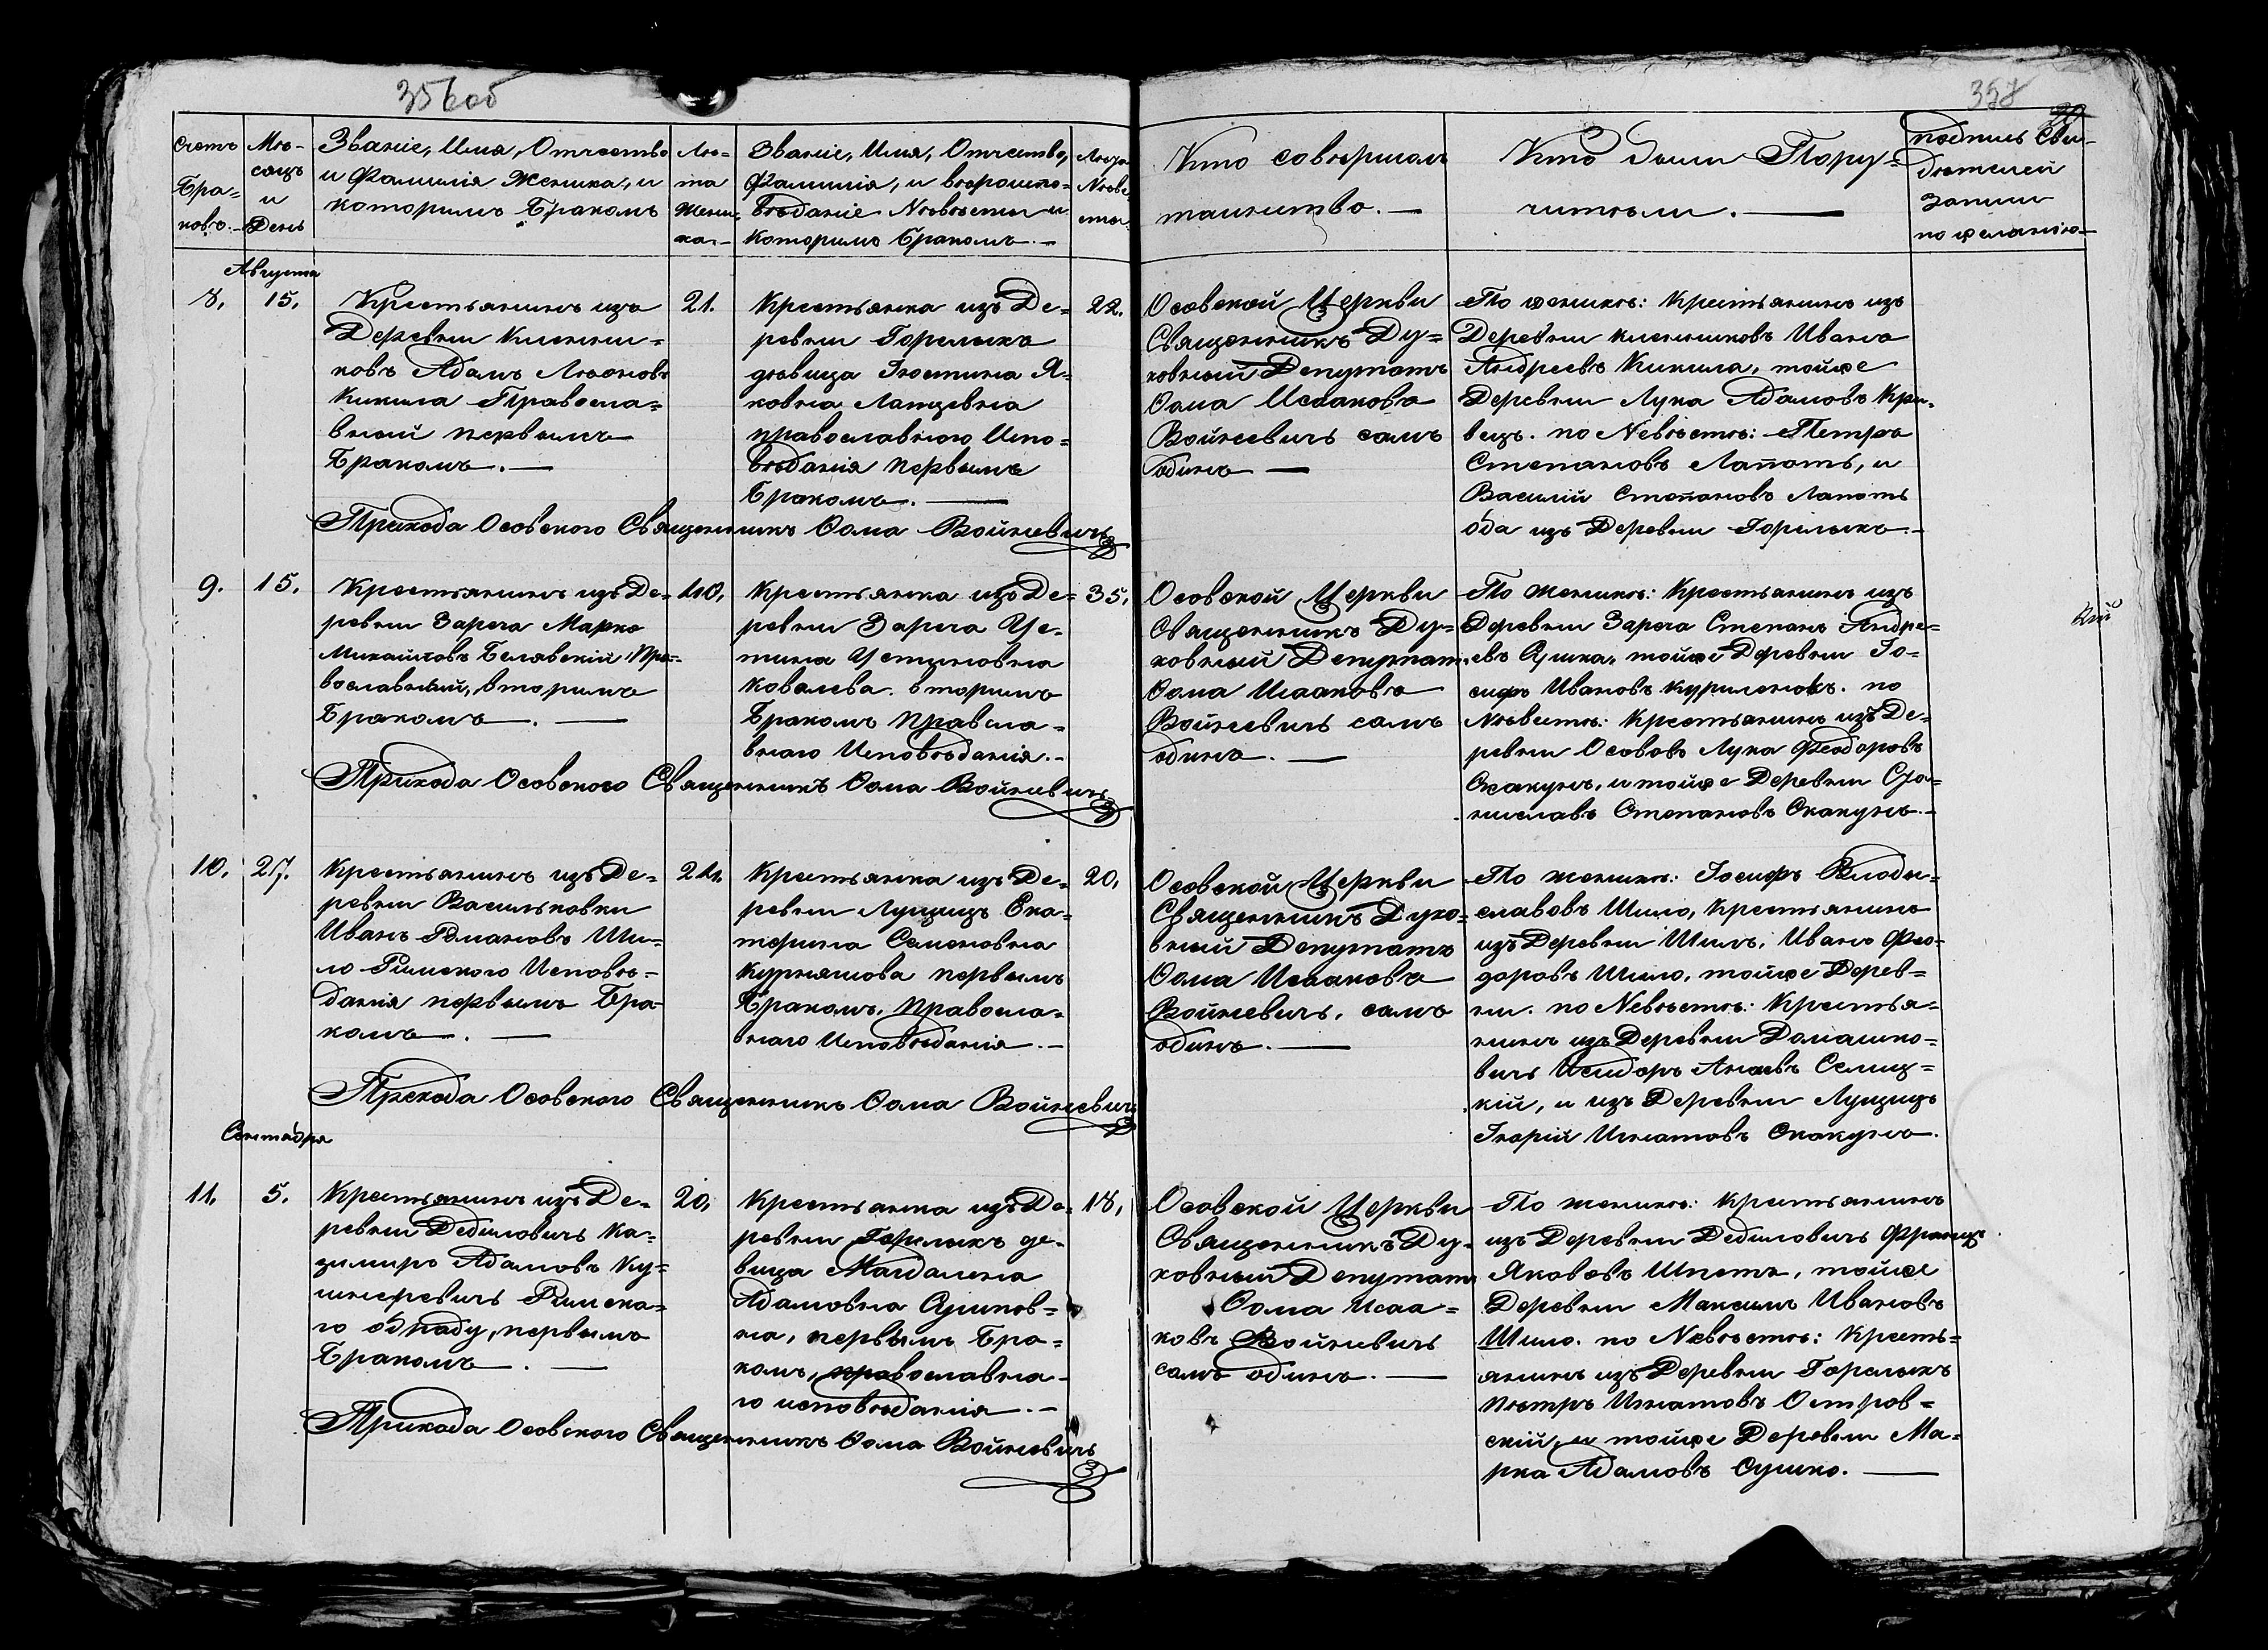 356об
358
29
Счетъ
Бра=
ковъ.
Мѣ-
сяцъ
и
День
Званіе, Имя, Отчество
и Фамилія Жениха, и
которымъ Бракомъ
Лѣ=
та
Жени=
ха.
Званіе, Имя, Отчество,
Фамилія, и вѣроиспо=
вѣданіе Nевѣсты и
которымъ Бракомъ.
Лѣта
Nевѣ
сты.
Кто совершалъ
таинство.
Кто были Пору=
чители.
подпись Сви-
дѣтелей
записи
по желанію
Августа
8.
15.
Крестьянинъ изъ
Деревни Кленни=
ковъ Адамъ Леоновъ
Кикила Правосла=
вный первымъ
Бракомъ.
21.
Крестьянка изъ Де=
ревни Горелыхъ
дѣвица Іюстина Я=
ковна Лапцевна
православного Испо=
вѣданія первымъ
Бракомъ.
22.
Осовской Церкви
Священникъ Ду=
ховный Депутатъ
Ѳома Исааковъ
Войневичъ самъ
одинъ
По женихѣ: Крестьянинъ изъ
Деревни клеников Иванъ
Андреевъ Кикила, тойже
Деревни Лука Адамовъ Кра-
вецъ. по Nевѣстѣ: Петръ
Степановъ Лапоть, и
Василій Степановъ Лапоть
оба изъ Деревни Горилыхъ.
Прихода Осовского Священникъ Ѳома Войневичъ
9.
15.
Крестьянинъ изъ Де-
ревни Зареча Марко
Михайловъ Белявскій Пра-
вославный, вторымъ
Бракомъ.
40.
Крестьянка изъ Де=
ревни Зареча Ус=
тина Устиновна
Ковалева. вторымъ
Бракомъ правосла=
внаго Исповѣданія.
35.
Осовской Церкви
Священникъ Ду=
ховный Депутатъ
Ѳома Исааковъ
Войневичъ самъ
одинъ.
По женихѣ: Крестьянинъ изъ
Деревни Зареча Степанъ Андре=
евъ Сушка, тойже Деревни Іо=
сифъ Ивановъ Куриленокъ. по
Nевестѣ: Крестьянинъ изъ Де=
ревни Осовов Лука Феодоровъ
Скакунъ, и тойже Деревни Ста=
ниславъ Степановъ Скакунъ.
Прихода Осовского Священникъ Ѳома Войневичъ
10.
27.
Крестьянинъ изъ Де=
ревни Васильковки
Иванъ Романовъ Ши=
ло Римского Исповѣ=
данія первымъ Бра-
комъ.
24.
Крестьянка изъ Де=
ревни Лущицъ Ека=
терина Семеновна
Курняшова первымъ
Бракомъ. Правосла=
внаго Исповѣданія.
20.
Осовской Церкви
Священникъ Духо=
вный Депутатъ
Ѳома Исааковъ
Войневичъ. самъ
одинъ.
По женихѣ: Іосифъ Влоди=
славовъ Шило, Крестьянинъ
изъ Деревни Шилъ, Иванъ Фео-
доровъ Шило, тойже Дерев=
ни. по Nевѣстѣ: Крестья=
нинъ изъ Деревни Домашко=
вичъ Исидоръ Антоевъ Селиц=
кій, и изъ Деревни Лущицъ
Юорій Игнатовъ Скакунъ.
Прихода Осовского Священникъ Ѳома Войневичъ
Сентабря
11.
5.
Крестьянинъ изъ Де=
ревни Дедиловичъ Ка=
зимиръ Адамовъ Ку=
шнеревичъ Римска=
го обряду, первымъ
Бракомъ.
20.
Крестьянка изъ Де=
ревни Горелыхъ де=
вица Магдалена
Адамовна Сушков=
на, первымъ Бра=
комъ, православна-
го исповѣданія.
18.
Осовской Церкви
Священникъ Ду-
ховный Депутатъ
Ѳома Исаа=
ковъ Войневичъ
самъ одинъ.
По женихѣ: Крестьянинъ
изъ Деревни Дедиловичъ Францъ
Яковов Шпетъ, тойже
Деревни Максимъ Ивановъ
Шило. по Nевѣстѣ: Кресть=
янинъ изъ Деревни Горелыхъ
Пѣтръ Игнатовъ Остров=
скій, и тойже Деревни Ма=
рка Адамовъ Сушко.
Прихода Осовского Священникъ Ѳома Войневичъ
кій